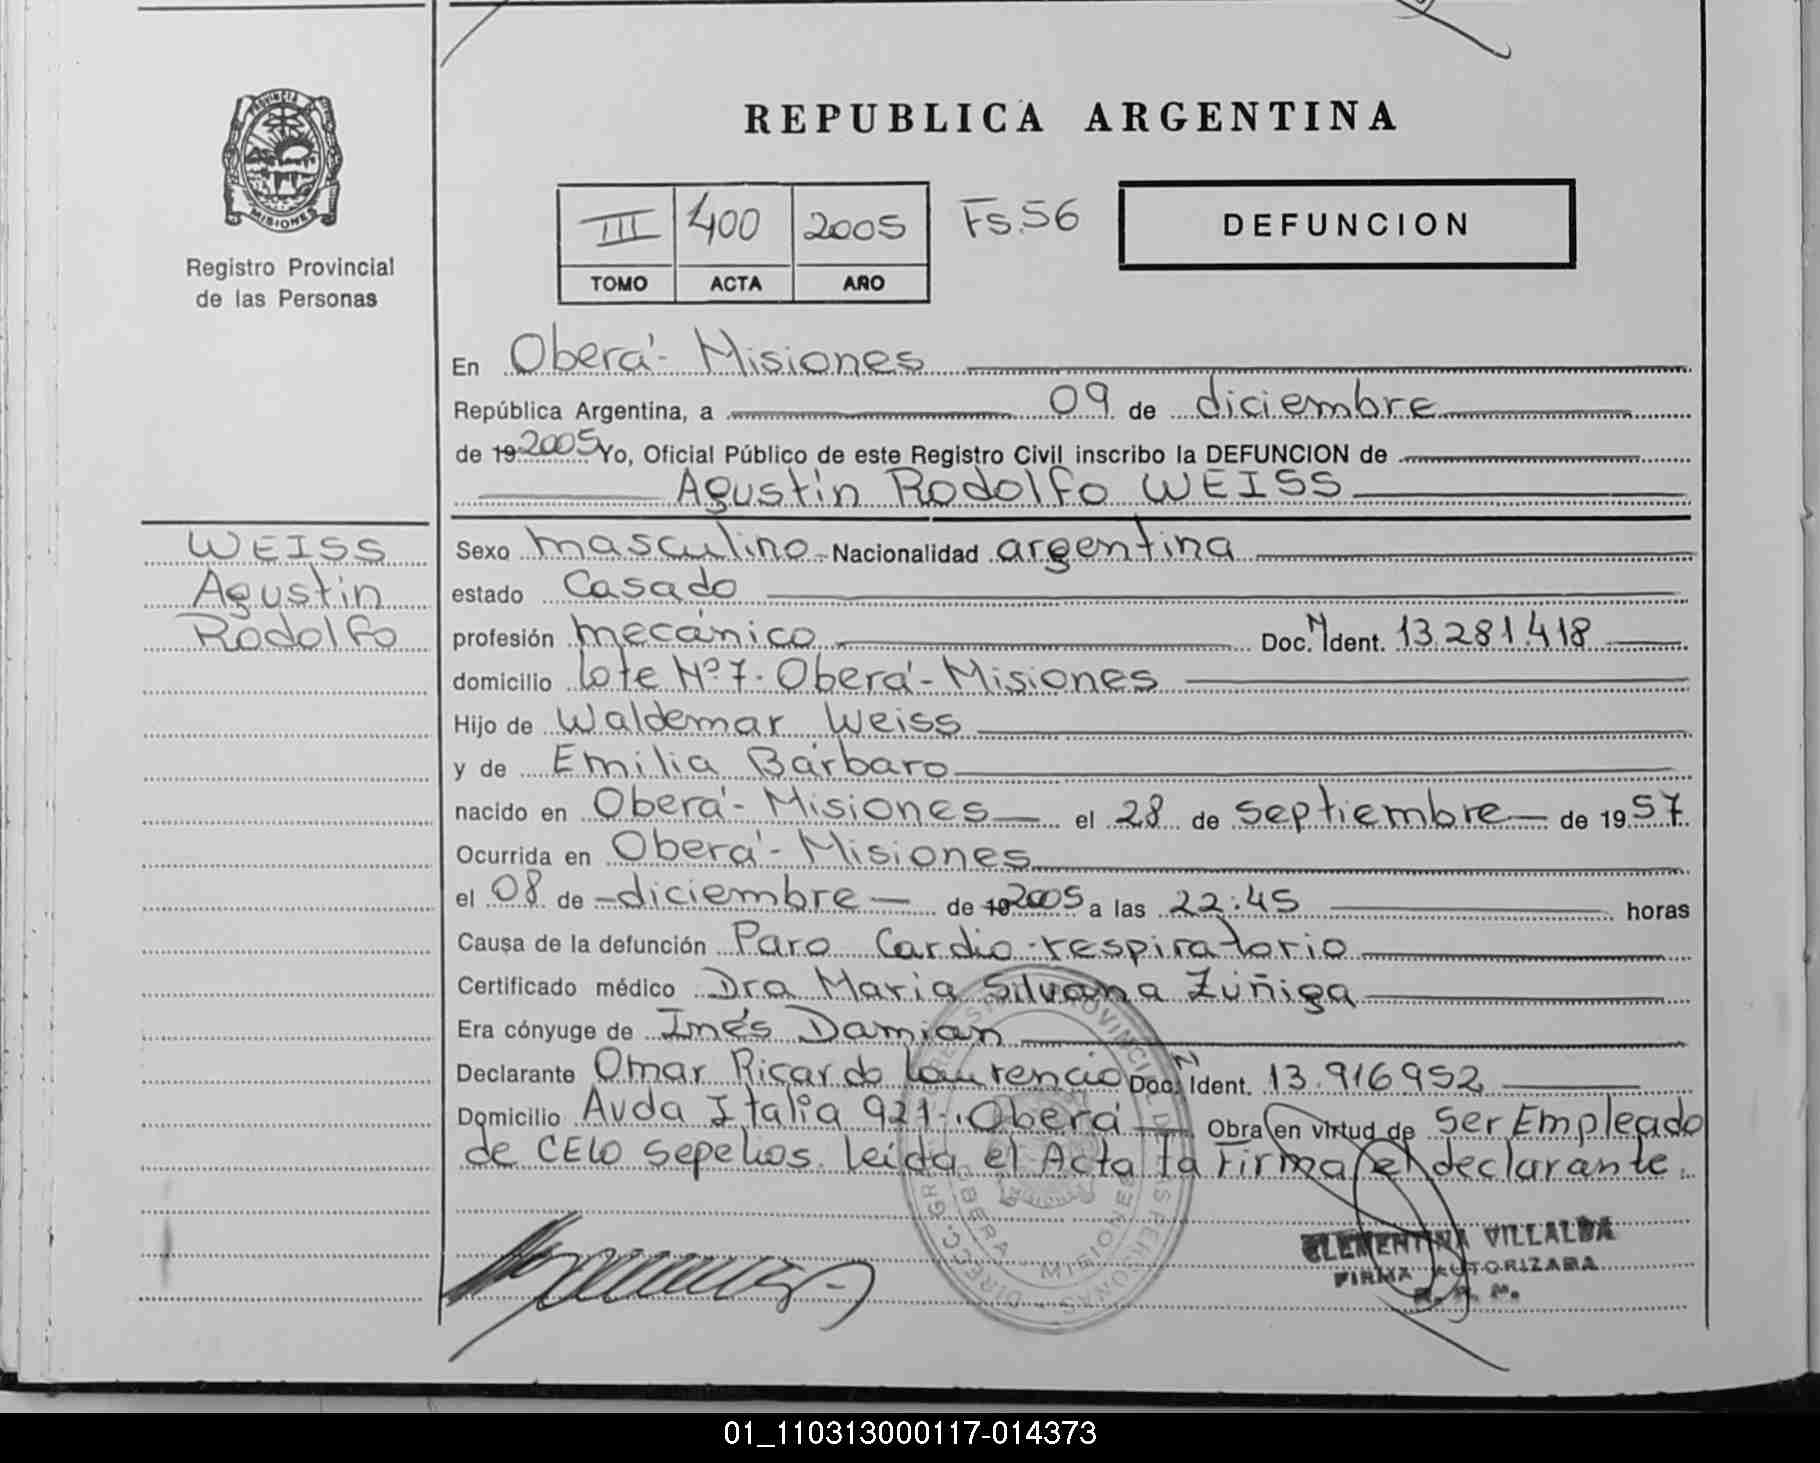 REPUBLICA ARGENTINA
PROVINCIA DE
MISIONES
Registro Provincial
de las Personas
III 400 2005 Fs.56
TOMO ACTA AÑO
DEFUNCION
En Oberá - Misiones
República Argentina, a 09 de diciembre
de 19 2005 Yo, Oficial Público de este Registro Civil inscribo la DEFUNCION de
Agustín Rodolfo WEISS
WEISS
Agustín
Rodolfo
Sexo masculino - Nacionalidad argentina
estado Casado
profesión mecánico Doc. N Ident. 13.281.418
domicilio lote Nº 7. Oberá - Misiones
Hijo de Waldemar Weiss
y de Emilia Bárbaro
nacido en Oberá - Misiones el 28 de septiembre de 1957
Ocurrida en Oberá - Misiones
el 08 de diciembre de 19 2005 a las 22:45 horas
Causa de la defunción Paro Cardio-respiratorio
Certificado médico Dra Maria Silvana Zúñiga
Era cónyuge de Inés Damian
Declarante Omar Ricardo Laurencio Doc. N Ident. 13.916952
Domicilio Avda Italia 921 - Oberá Obra en virtud de Ser Empleado
de CELO Sepelios. Leída el Acta la Firma el declarante.
CLEMENTINA VILLALBA
FIRMA AUTORIZADA
OBERA MISIONES
01_110313000117-014373